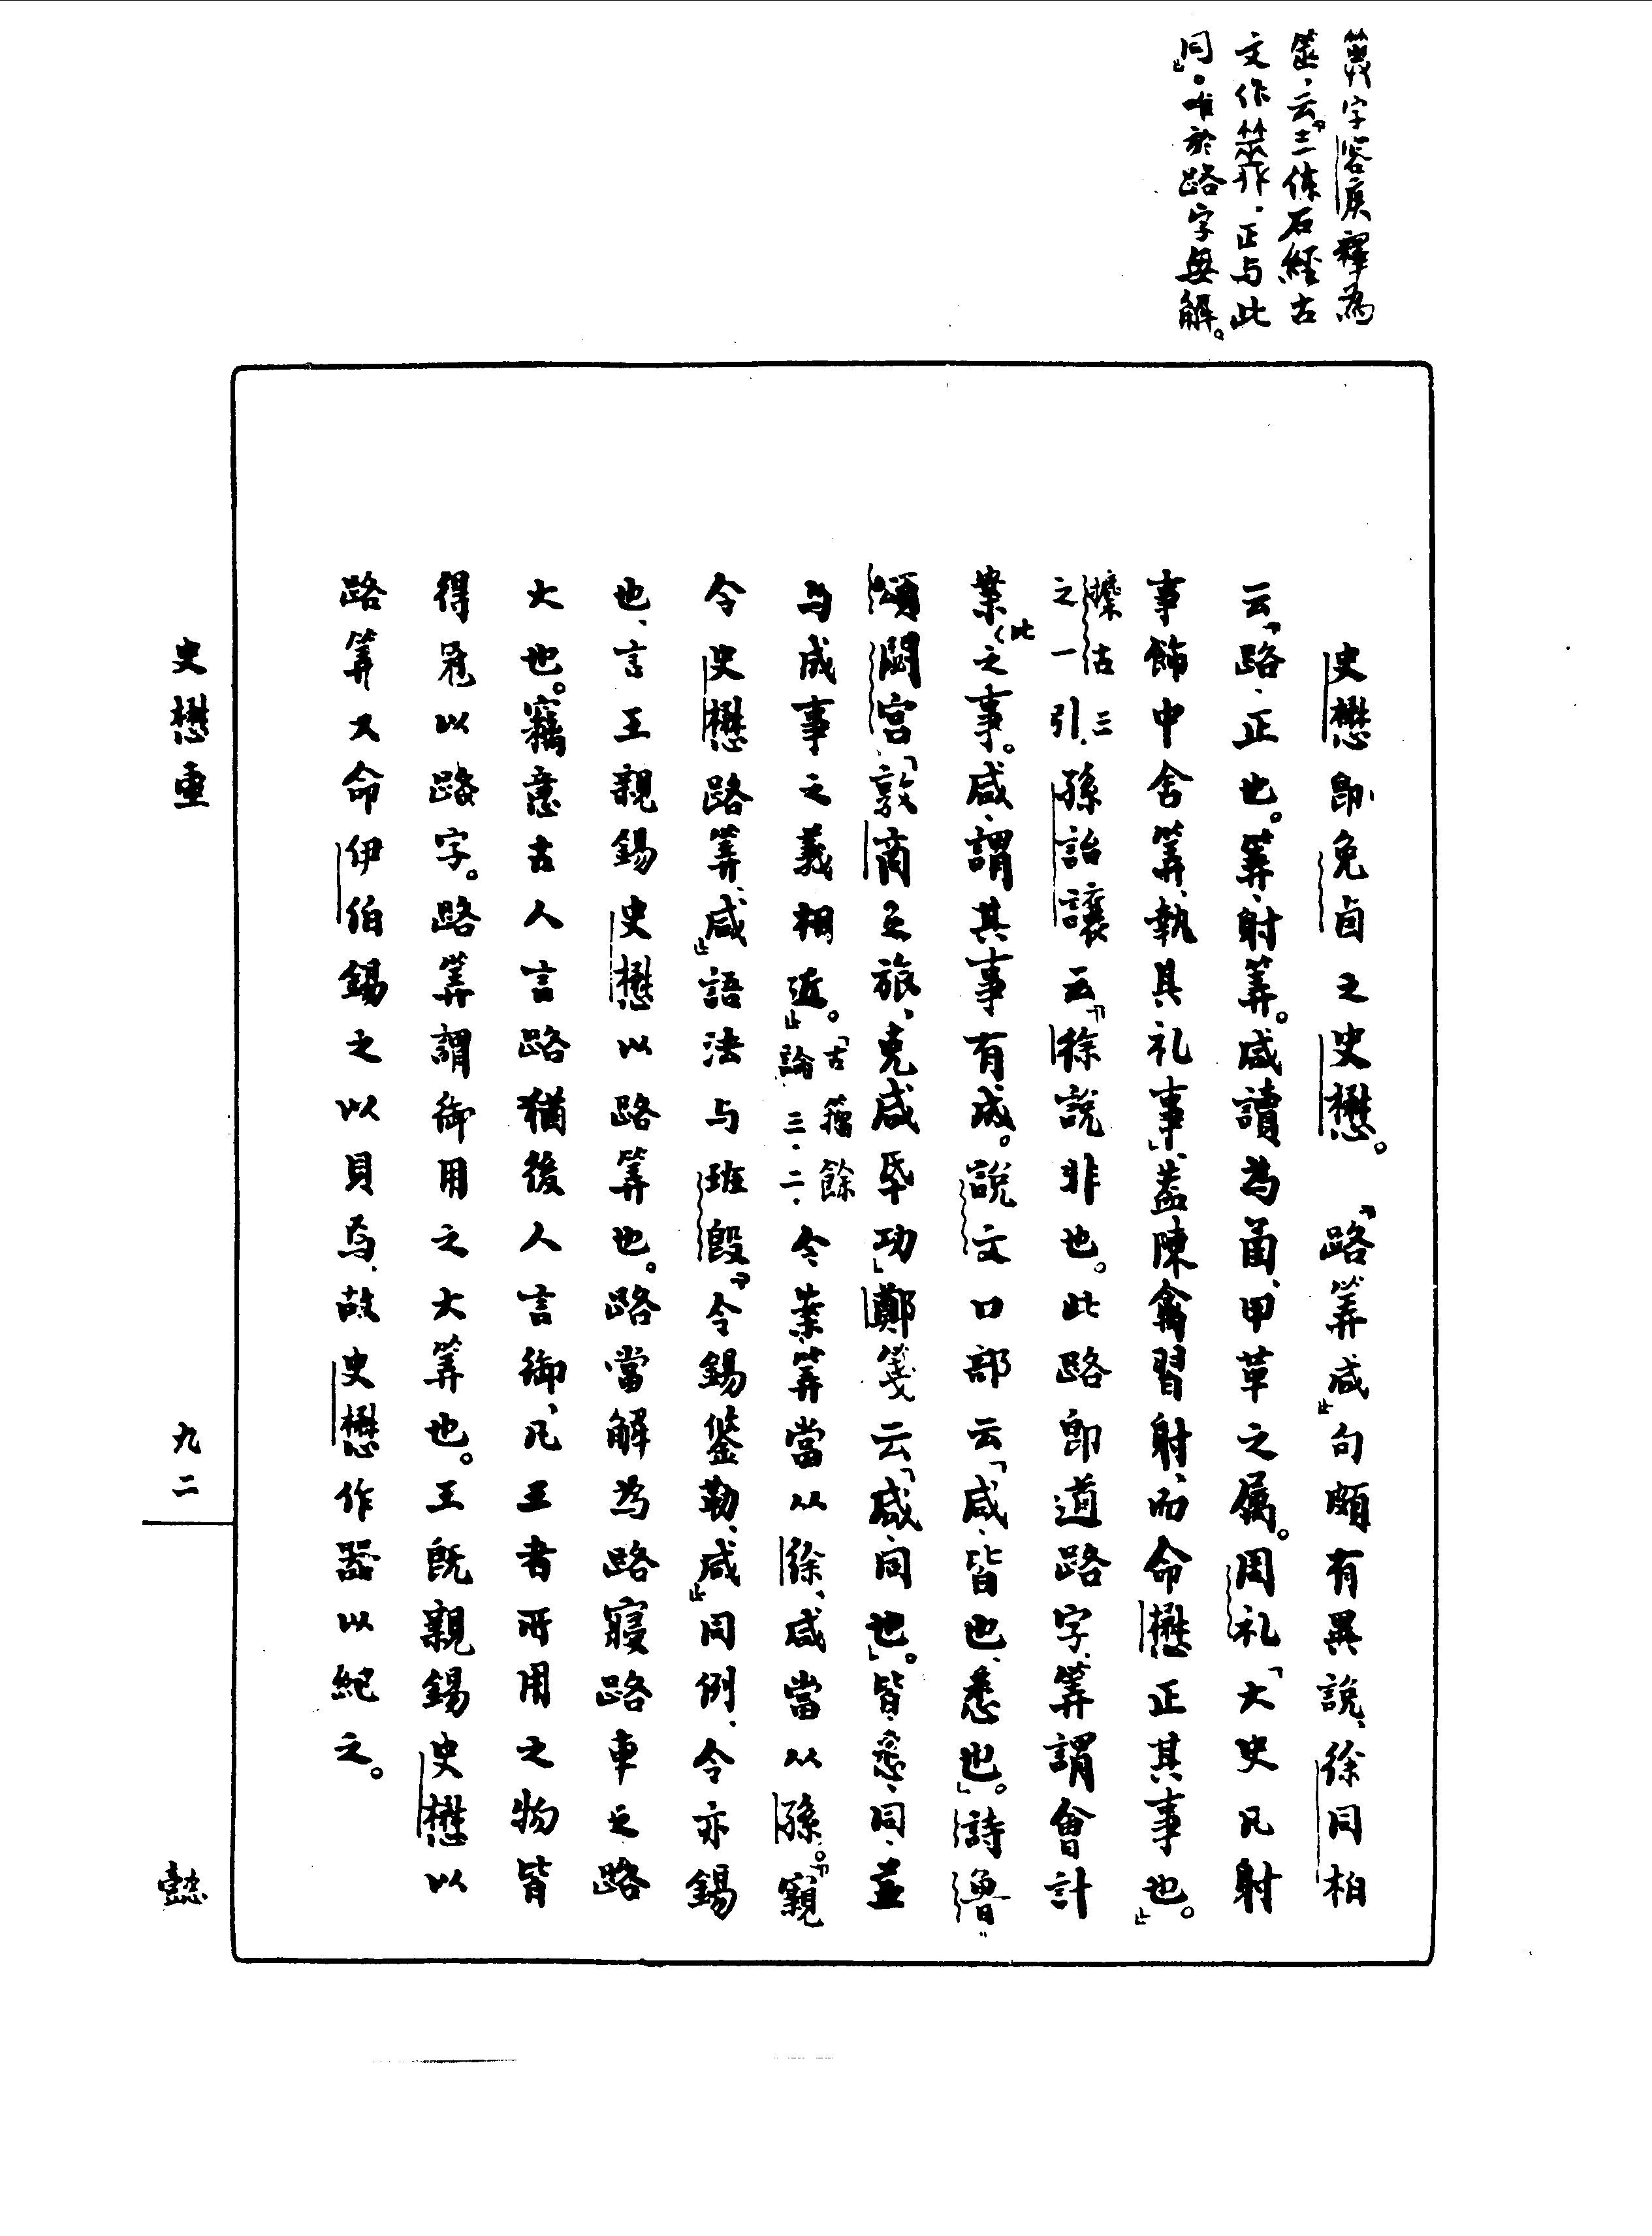 字容庚釋為
筮，云『三体石經古
文作，正与此
同』。唯於路字無解。
史懋即免卣之史懋。『路筭咸』句頗有異說，徐同柏
云『路，正也。筭，射筭。咸讀為函，甲革之屬。周礼「大史凡射
事飾中舍筭，執其礼事」，蓋陳禽習射，而命懋正其事也。』
攈古三
之一引，孫詒讓云『徐說非也。此路即道路字，筭謂會計
業(此)之事。咸，謂其事有成。說文口部云「咸，皆也，悉也」。詩魯
頌閟宮「敦商之旅，克咸氒功」鄭箋云「咸，同也」。皆，悉，同，並
与成事之義相近』。「古籀餘
論三．二，今案筭當从徐，咸當从孫。『窺
令史懋路筭，咸』語法与班𣪘『令錫鋚勒，咸』同例，令亦錫
也，言王親錫史懋以路筭也。路當解為路寢路車之路
大也。竊意古人言路猶後人言御，凡王者所用之物皆
得冠以路字。路筭謂御用之大筭也。王既親錫史懋以
路筭又命伊伯錫之以貝焉，故史懋作器以紀之。
史懋壺
九二
懿